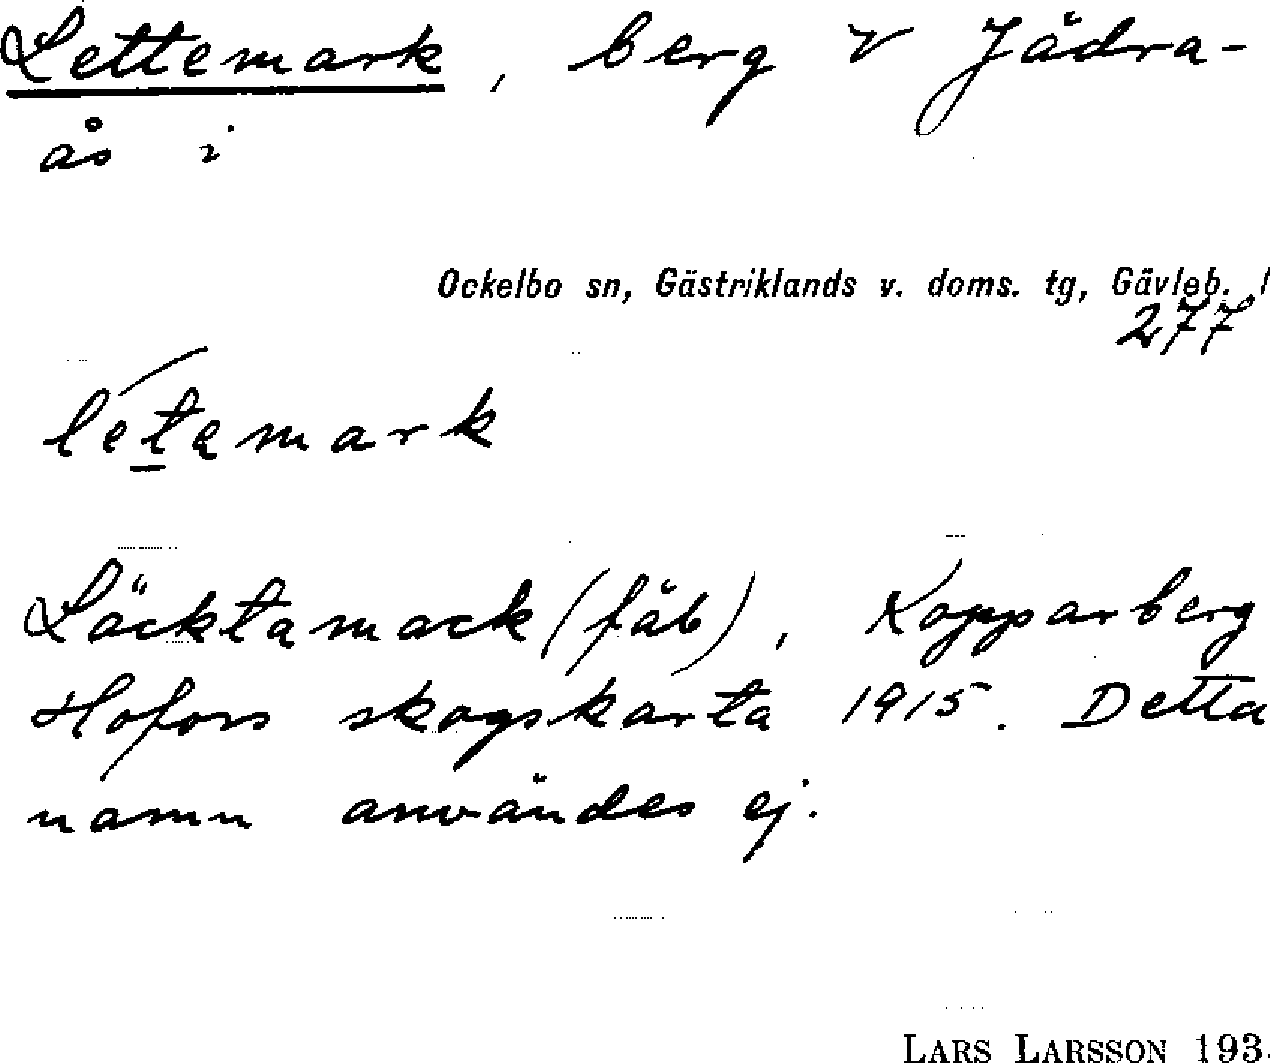 Lettemark, berg v Jädra-
ås i
Ockelbo sn, Gästriklands v. doms. tg, Gävleb. l
277
letamark
Läcktamack (fäb), Kopparberg
Hofors skogskarta 1915. Detta
namn användes ej.
LARS LARSSON 193